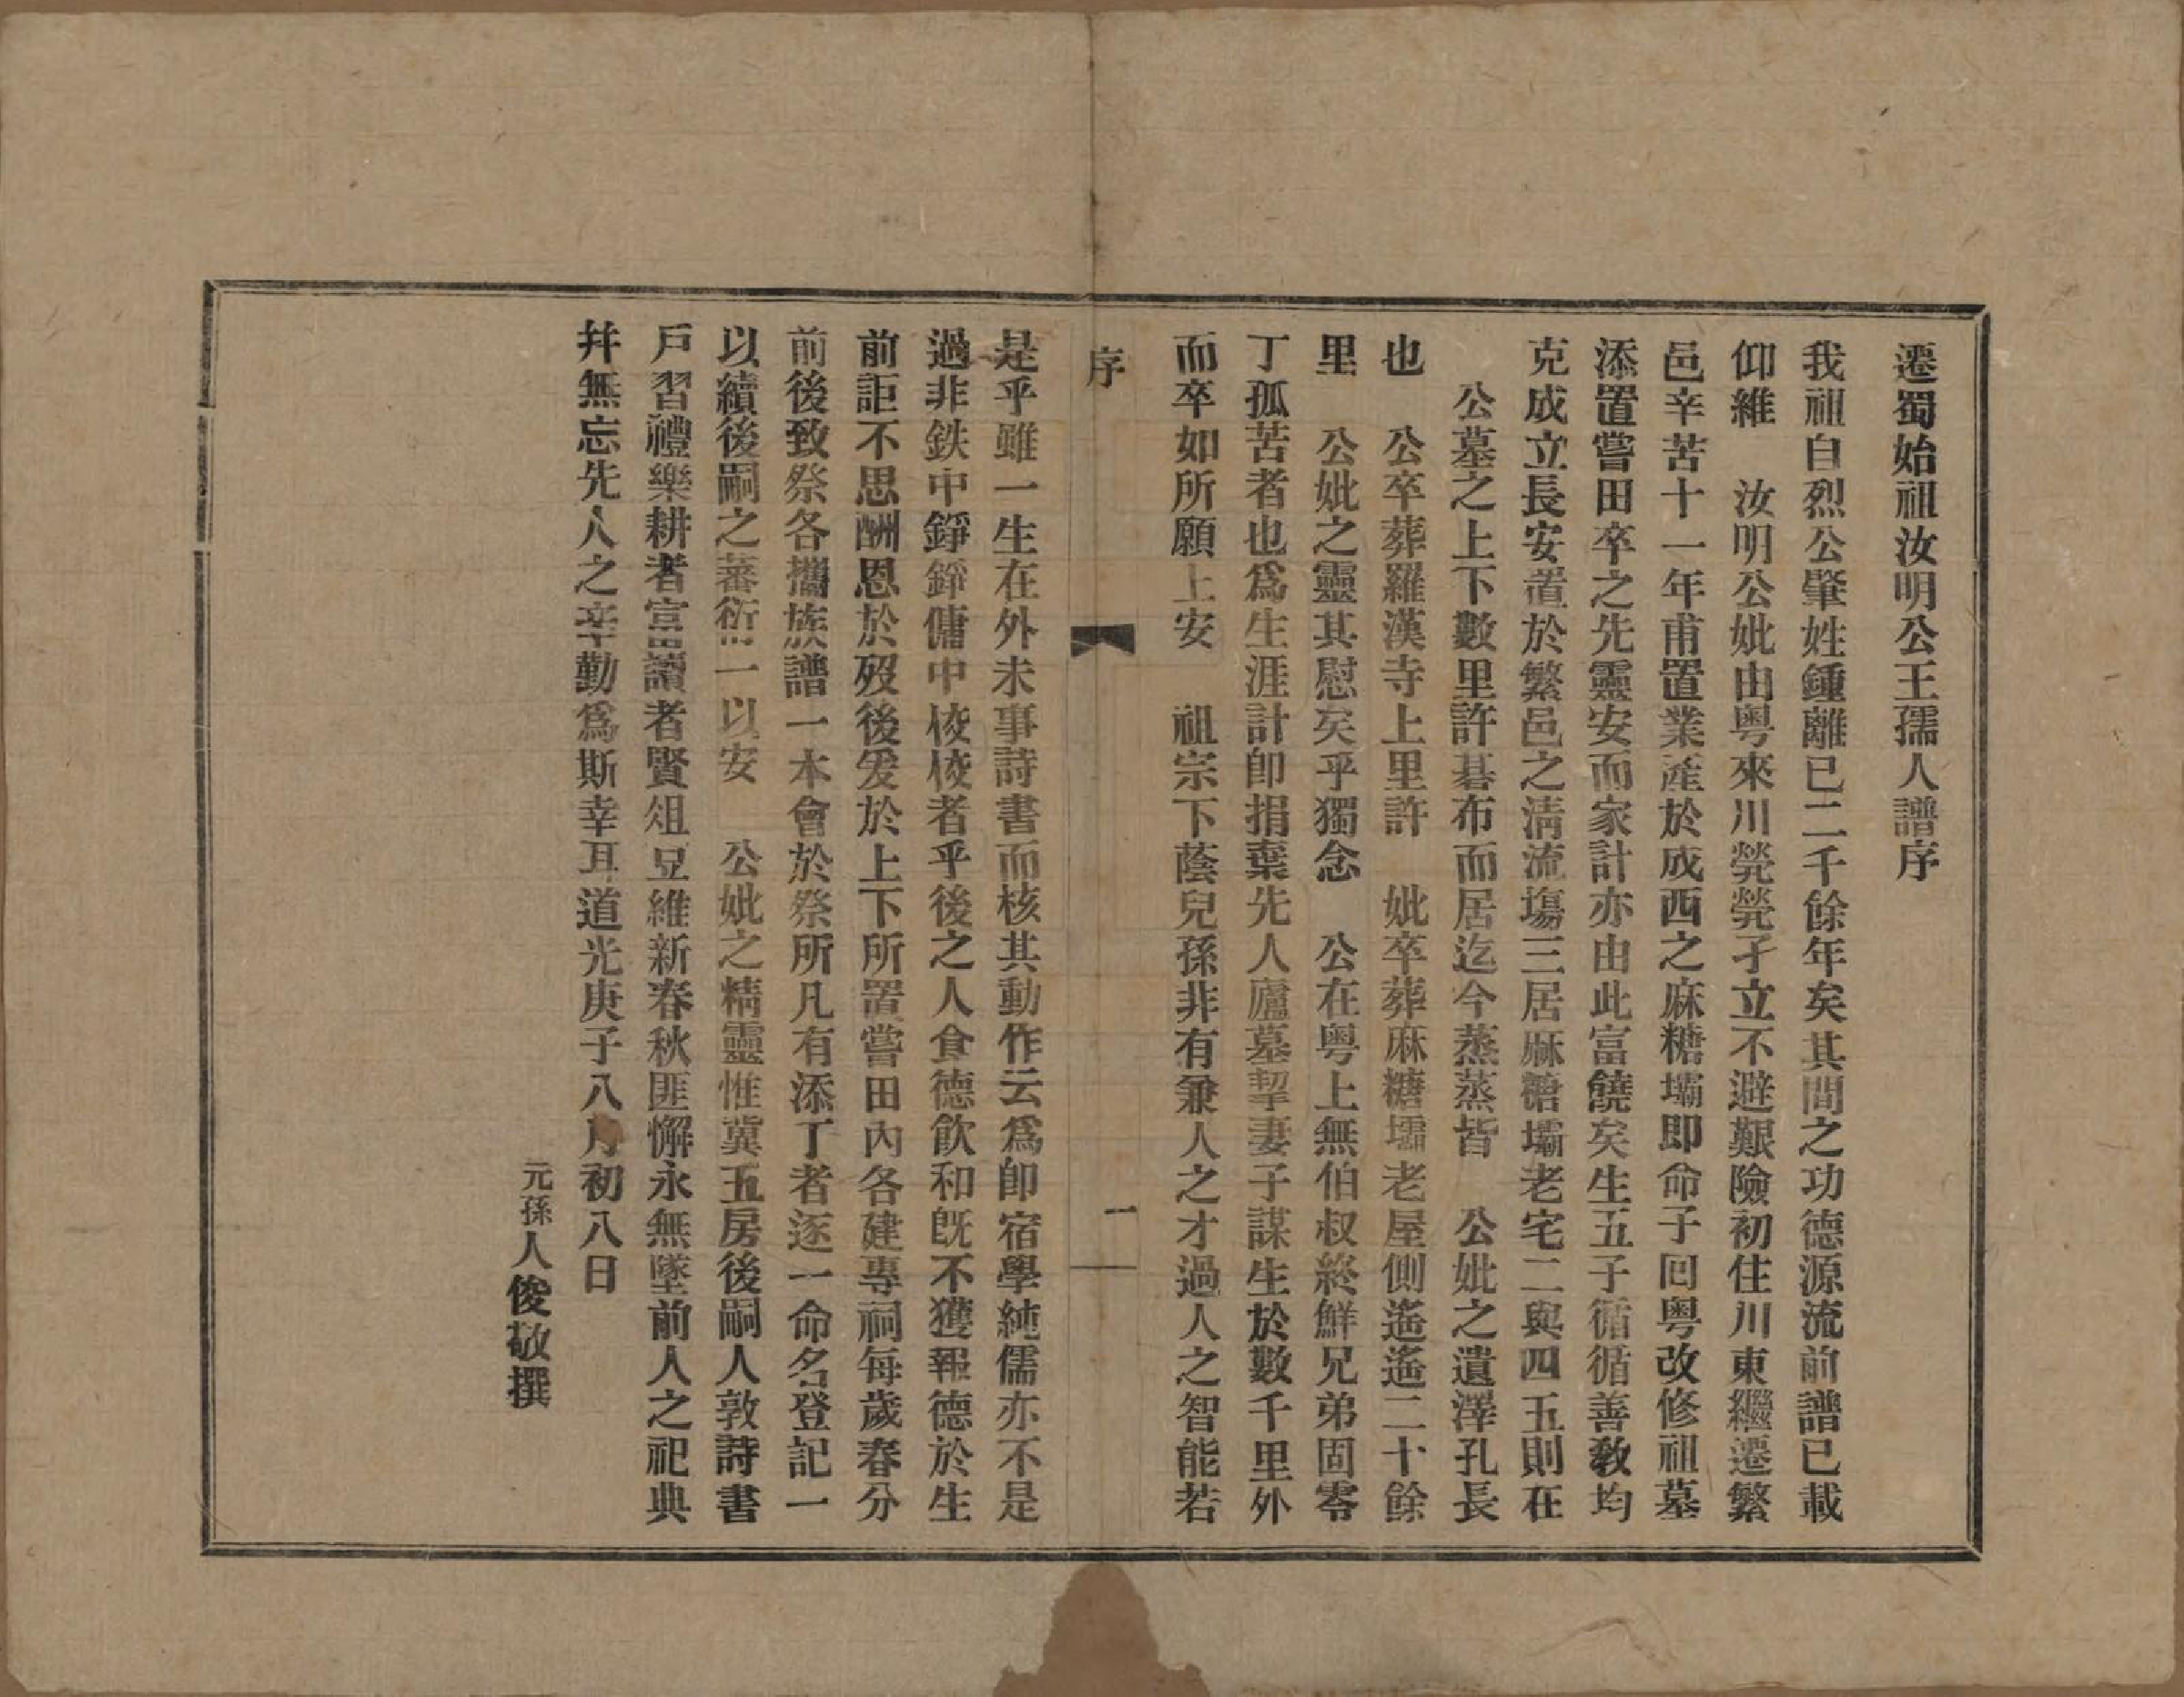 遷蜀始祖汝明公王孺人譜序
我祖自烈公肇姓鍾離已二千餘年矣其間之功德源流前譜已載
仰維　汝明公妣由粵來川煢煢孑立不避艱險初住川東繼遷繁
邑辛苦十一年甫置業產於成西之麻糖壩即命子囘粵改修祖墓
添置嘗田卒之先靈安而家計亦由此富饒矣生五子循循善教均
克成立長安置於繁邑之清流塲三居麻糖壩老宅二與四五則在
　公墓之上下數里許碁布而居迄今蒸蒸皆　公妣之遺澤孔長
也　公卒葬羅漢寺上里許　妣卒葬麻糖壩老屋側遙遙二十餘
里　公妣之靈其慰矣乎獨念　公在粵上無伯叔終鮮兄弟固零
丁孤苦者也爲生涯計卽捐棄先人廬墓挈妻子謀生於數千里外
而卒如所願上安　祖宗下蔭兒孫非有兼人之才過人之智能若
序
一
是乎雖一生在外未事詩書而核其動作云爲卽宿學純儒亦不是
過非鉄中錚錚傭中梭梭者乎後之人食德飲和旣不獲報德於生
前詎不思酬恩於歿後爰於上下所置嘗田內各建專祠每歲春分
前後致祭各攜族譜一本會於祭所凡有添丁者逐一命名登記一
以續後嗣之蕃衍一以安　公妣之精靈惟冀五房後嗣人敦詩書
戶習禮樂耕者宣讀者賢俎豆維新春秋匪懈永無墜前人之祀典
幷無忘先人之辛勤爲斯幸耳道光庚子八月初八日
元孫人俊敬撰